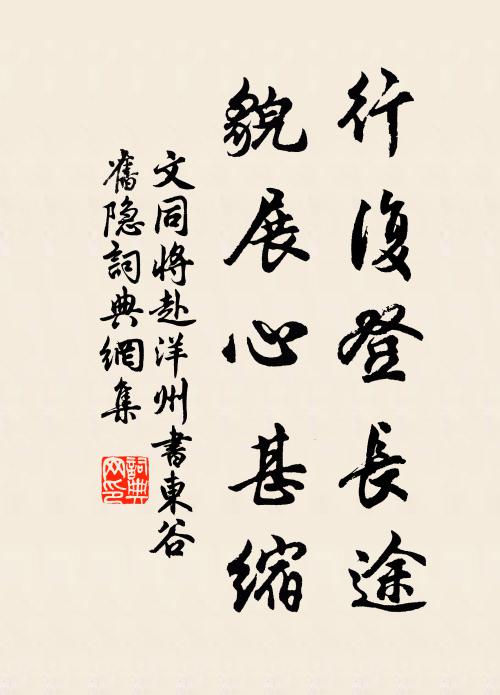 行復登長途
貌展心甚縮
文同将赴洋州書東谷
舊隐詞典網集
詞典
网印